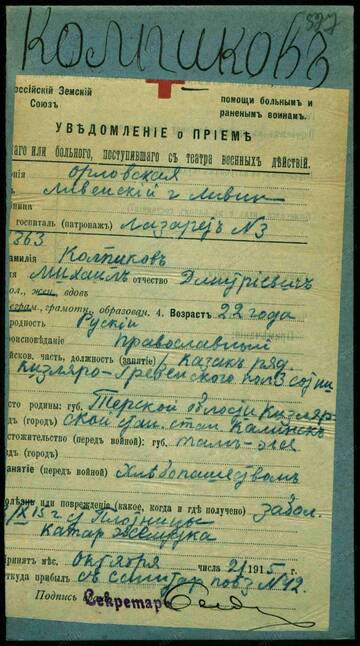 Колпиковъ
327
россійскій Земскій
Союзъ
помощи больнымъ и
раненымъ воинамъ.
УВѢДОМЛЕНІЕ о ПРІЕМѢ
наго или больного, поступившаго съ театра военныхъ дѣйствій.
Орловская
Ливенскій г Ливны
госпиталь (патронажъ) Лазаретъ №3
1863
амилія Колпиковъ
Михаилъ отчество Дмитріевичъ
жен. вдовъ
грамотн. образован. 4. Возрастъ 22 года
родность Рускій
роисповѣданіе православный
йсков. часть, должность (занятіе) Казакъ ряд
Кизляро-Гребенского пол 3 сотни
сто родины: губ. Терской области Кизляр
(городъ) ской стан. Калинск
стожительство (передъ войной): губ. тамъ-же
(городъ)
анятіе (передъ войной) Хлѣбопашествомъ
олѣзнь или поврежденіе (какое, когда и гдѣ получено) забол.
/IX 15 г с/ Плотницы
катар желудка
ринятъ мѣс. Октября числа 21 1915 г.
ткуда прибылъ съ санитар поѣз №42.
Подпись
Секретарь